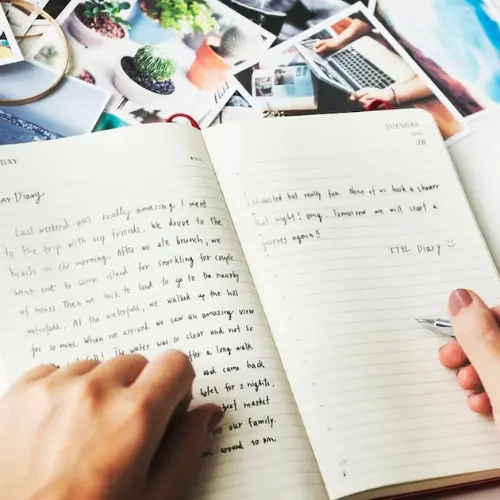 DAY
Dear Diary
Last weekend was really amazing. I went
to the trip with my friends. We drove to the
beach in the morning. After we ate brunch, we
went out to some island for snorkling for couple
of hours. Then we back to land to go to the nearby
waterfall. At the waterfall, we walked up the hill
for 30 mins. When we arrived we saw an amazing view
The water was so clear and not so
after a long walk
and came back
hotel for 2 nights.
market
for our family.
and around 10 pm.
TUESDAY
28
exhausted but really fun. None of us took a shower
that night! omg. Tomorrow we will start a
journey again!!
TTYL Diary